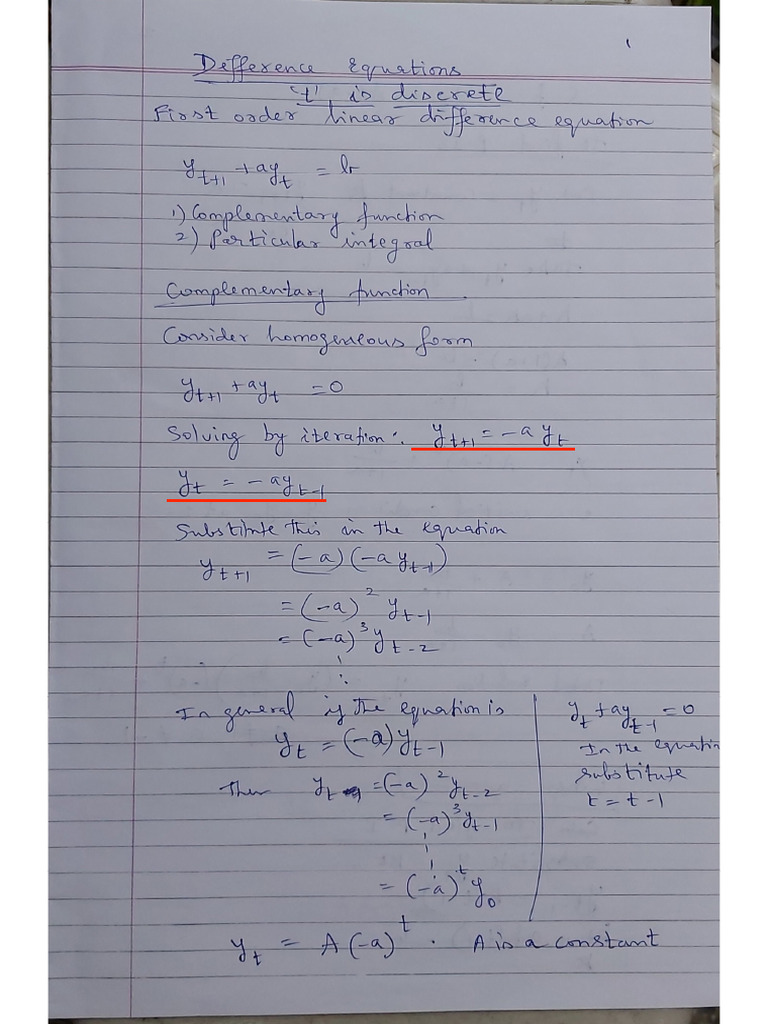 1
Defference Equations
't' is discrete
First order linear difference equation
y_{t+1} + ay_t = b
1) Complementary function
2) Particular integral
Complementary function
Consider homogeneous form
y_{t+1} + ay_t = 0
Solving by iteration: y_{t+1} = -a y_t
y_t = -ay_{t-1}
Substitute this in the equation
y_{t+1} = (-a)(-a y_{t-1})
= (-a)^2 y_{t-1}
= (-a)^3 y_{t-2}
⋮
In general if the equation is
y_t = (-a)y_{t-1}
Then y_t = (-a)^2 y_{t-2}
= (-a)^3 y_{t-1}
⋮
= (-a)^t y_0
y_t + ay_{t-1} = 0
In the equation
substitute
t = t-1
y_t = A(-a)^t. A is a constant